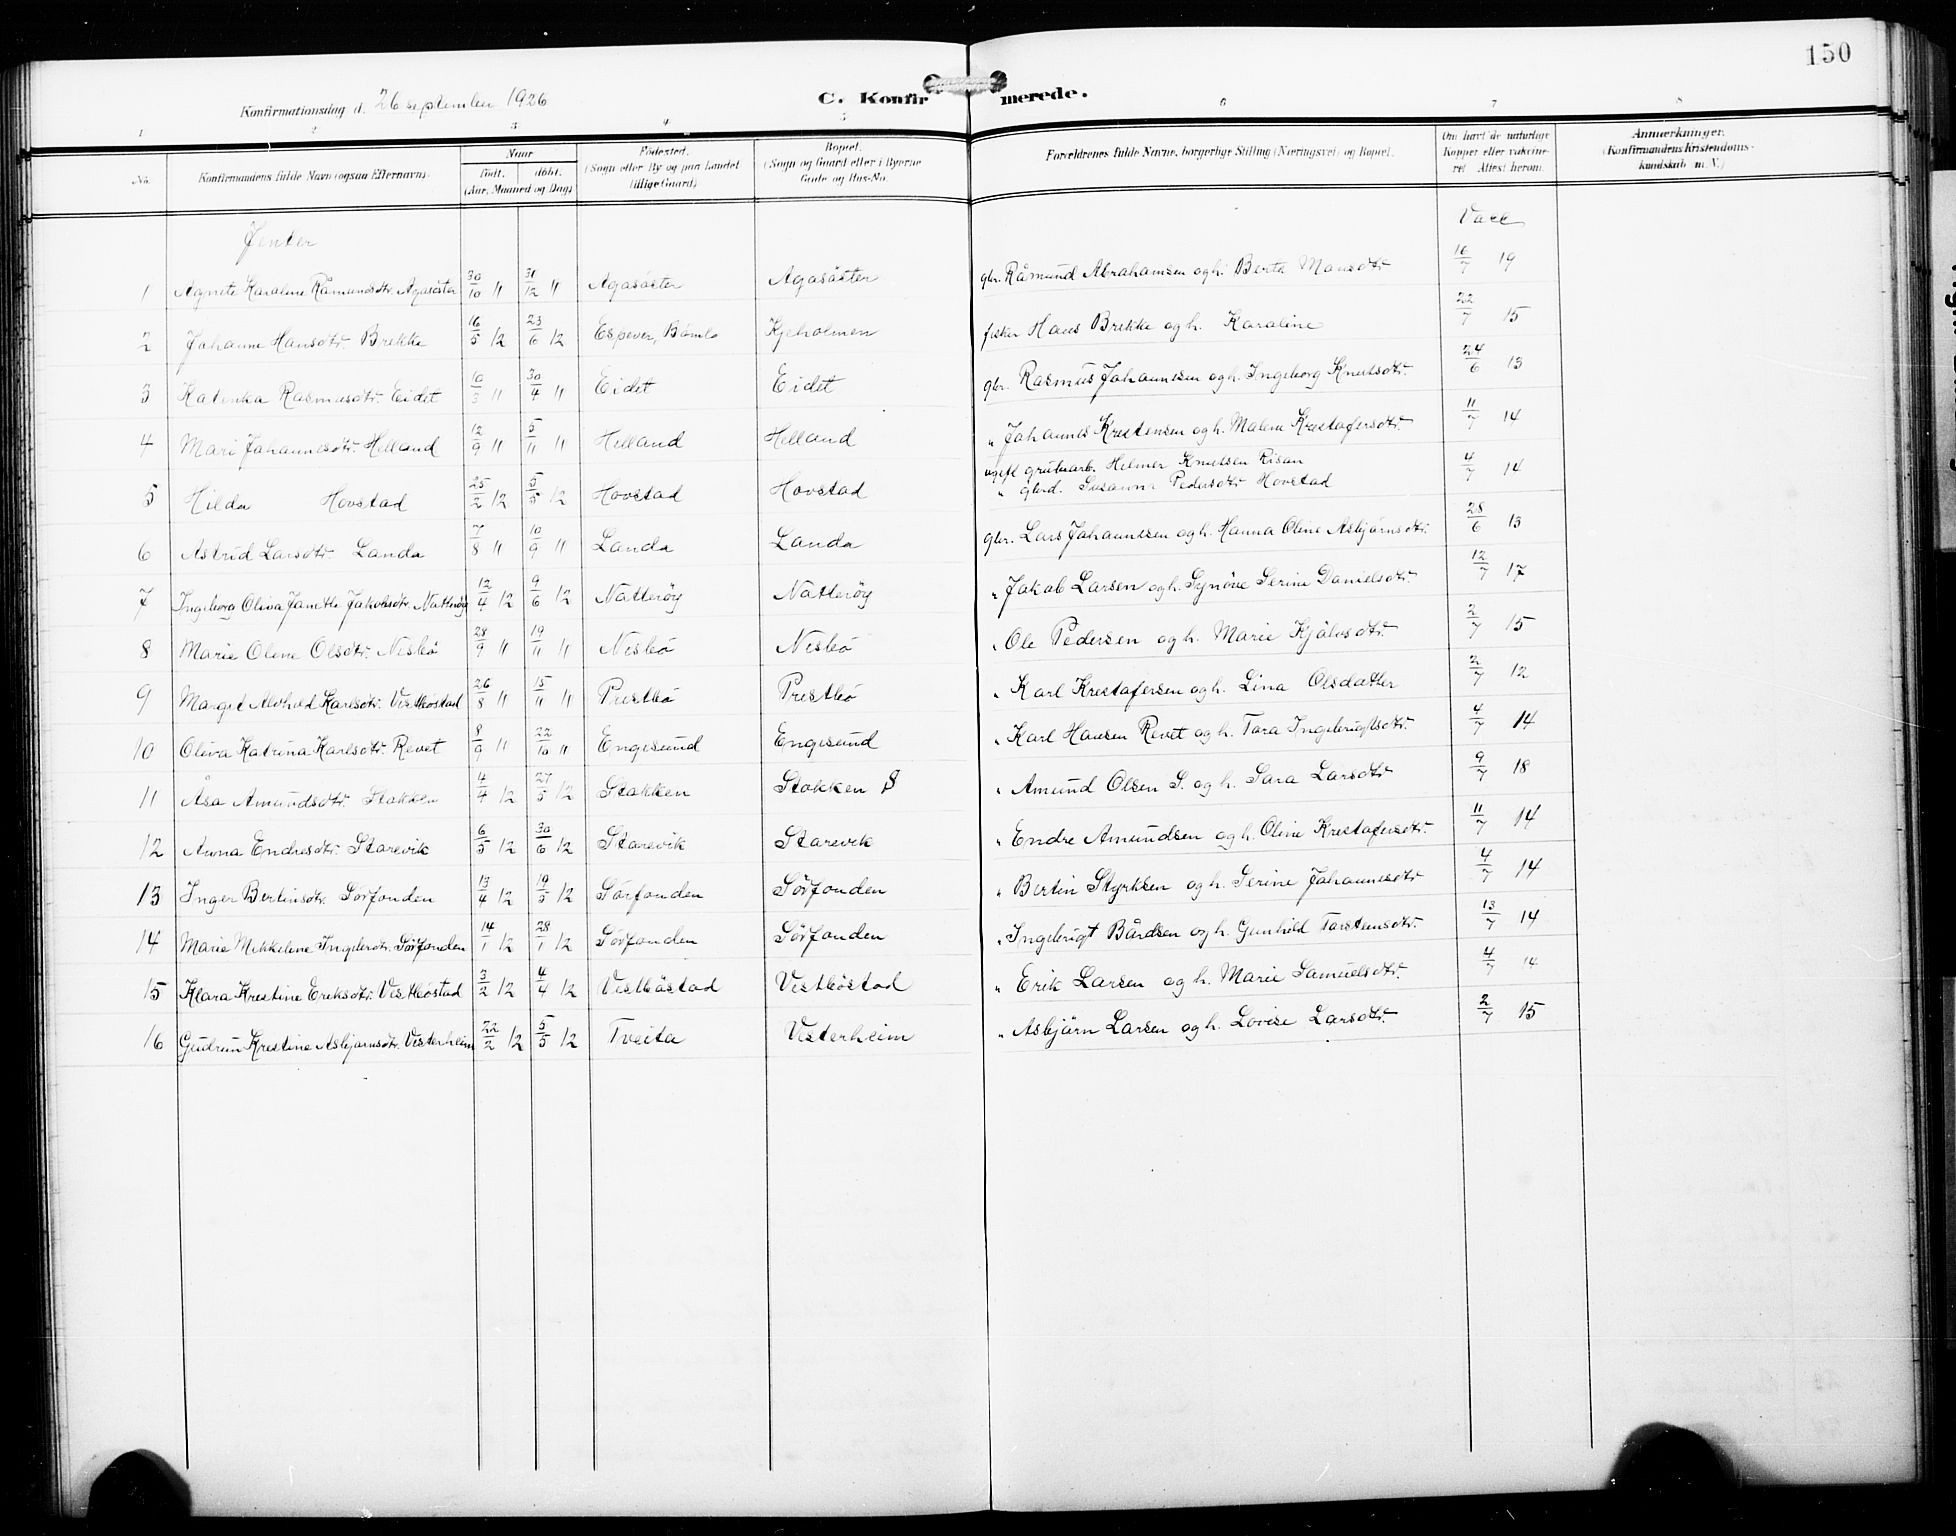 150
Konfirmationsdag d. 26 september 1926 C. Konfirmerede.
1 2 3 4 5 6 7 8
No. Konfirmandens fulde Navn (ogsaa Efternavn). Naar født. døbt. (Aar, Maaned og Dag). Fødested. (Sogn eller By og paa Landet tillige Gaard) Bopæl. (Sogn og Gaard eller i Byerne Gade og Hus-No. Forældrenes fulde Navne, borgerlige Stilling (Næringsvei) og Bopæl. Om havt de naturlige Kopper eller vakcineret. Attest herom. Anmærkninger. (Konfirmandens Kristendomskundskab m. V.)
Jenter Vacc
1 Agnete Karoline Råmundsdtr. Agasöster 30/10 11 31/12 11 Agasöster Agasöster gbr. Råmund Abrahamsen og h. Berta Monsdtr 16/7 19
2 Johanne Hansdtr. Brekke 16/5 12 23/6 12 Espever, Bömlo Kjeholmen fisker Hans Brekke og h. Karoline 22/7 15
3 Katinka Rasmusdtr. Eidet 10/3 11 30/4 11 Eidet Eidet gbr. Rasmus Johannesen og h. Ingeborg Knutsdtr. 24/6 13
4 Mari Johannesdtr. Helland 12/9 11 5/11 11 Helland Helland " Johannes Krestensen og h. Malene Krestofersdtr. 11/7 14
5 Hilda Hovstad 25/2 12 5/5 12 Hovstad Hovstad ugift grubearb. Helmer Knutsen Risan 4/7 14
" gbrd. Susanna Pedersdtr Hovstad
6 Astrid Larsdtr Landa 7/8 11 10/9 11 Landa Landa gbr. Lars Johannesen og h. Hanna Oline Asbjørnsdtr. 28/6 13
7 Ingeborg Oliva Janette Jakobsdtr. Natteröy 12/4 12 9/6 12 Natteröy Natteröy " Jakob Larsen og h. Synöve Serine Danielsdtr. 12/7 17
8 Marie Oline Olsdtr. Nesbö 28/9 11 19/11 11 Nesbö Nesbö " Ole Pedersen og h. Marie Kjålvsdtr. 2/7 15
9 Margit Alvhild Karlsdtr. Vestböstad 26/8 11 15/11 11 Prestbö Prestbö " Karl Krestofersen og h. Lina Olsdatter 2/7 12
10 Oliva Katrina Karlsdtr. Revet 8/9 11 22/10 11 Engesund Engesund " Karl Hansen Revet og h. Tora Ingebrigtsdtr. 4/7 14
11 Åsa Amundsdtr. Stokken 4/4 12 27/5 12 Stokken Stokken S " Amund Olsen S. og h. Sara Larsdtr 9/7 18
12 Anna Endresdtr. Storevik 6/5 12 30/6 12 Storevik Storevik " Endre Amundsen og h. Oline Krestofersdtr. 11/7 14
13 Inger Bertinsdtr. Sörfonden 13/4 12 19/5 12 Sörfonden Sörfonden " Bertin Styrksen og h. Serine Johannesdtr 4/7 14
14 Marie Mikkeline Ingebrdtr. Sörfonden 14/1 12 28/1 12 Sörfonden Sörfonden " Ingebrigt Bårdsen og h. Gunhild Torsteinsdtr. 13/7 14
15 Klara Krestine Eriksdtr. Vestböstad 3/2 12 4/4 12 Vestböstad Vestböstad " Erik Larsen og h. Marie Samuelsdtr. 4/7 14
16 Gudrun Krestine Asbjørnsdtr. Vesterheim 22/2 12 5/5 12 Tveita Vesterheim " Asbjørn Larsen og h. Lovise Larsdtr. 2/7 15